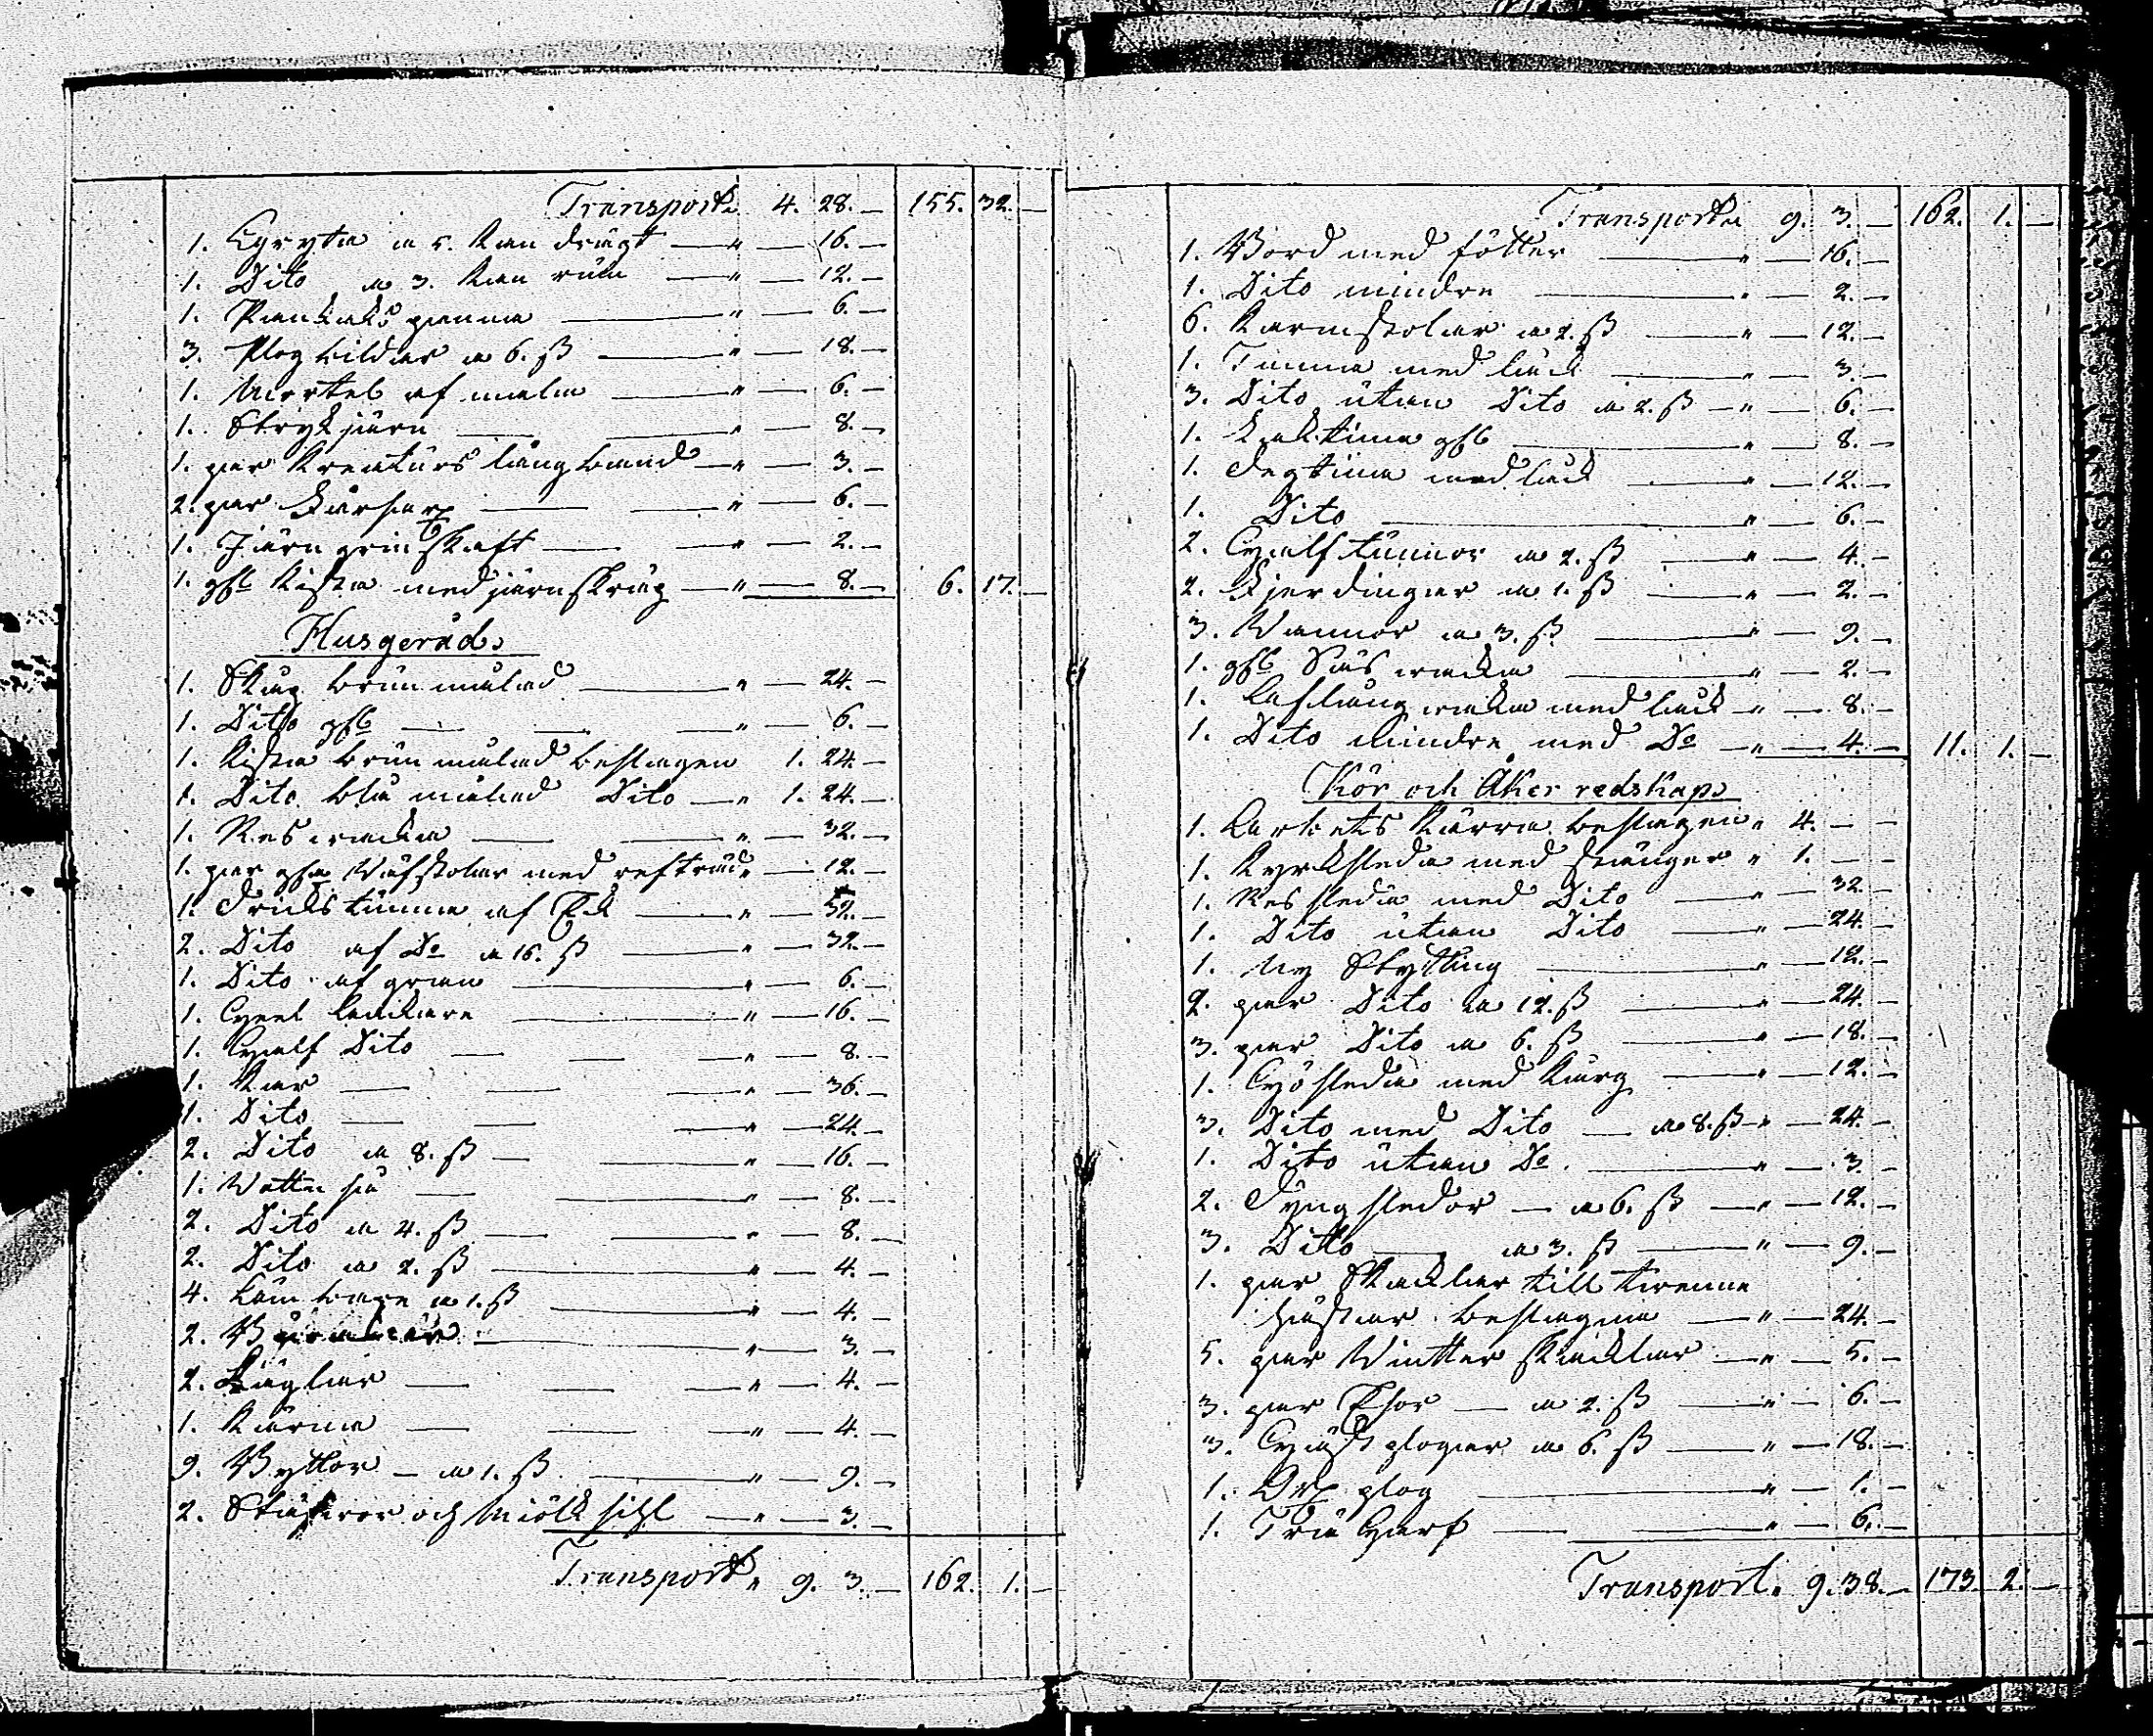 Transport. 4. 28. — 155. 32. —
1. Gryta a 5. Kan drägt — " — 16. —
1. Dito a 3. Kan rüm — " — 12. —
1. Pankaks panna — " — 6. —
3. Plogbildar a 6. ß — " — 18. —
1. Mortel af malm — " — 6. —
1. Strykjärn — " — 8. —
1. par Kreaturs långband — " — 3. —
2. par — " — 6. —
1. Järn grin skaft — " — 2. —
1. gſl Kista med järnskräp — " — 8. — 6. 17. —
Husgeråd.
1. Skåp brün målad — " — 24. —
1. Dito gſl — " — 6. —
1. Kista brün målad beslagen 1. 24. —
1. Dito blå målad Dito — " 1. 24. —
1. Res wacka — " — 32. —
1. par gſa Wäfstolar med refträd " — 12. —
1. Drickstunna af Ek — " — 32. —
2. Dito af Do a 16. ß — " — 32. —
1. Dito af gran — " — 6. —
1. Heel lankare — " — 16. —
1. Half Dito — " — 8. —
1. Kar — " — 36. —
1. Dito — " — 24. —
2. Dito a 8. ß — " — 16. —
1. Watten så — " — 8. —
2. Dito a 4. ß — " — 8. —
2. Dito a 2. ß — " — 4. —
4. a 1. ß — " — 4. —
2. — " — 3. —
2. Läglar — " — 4. —
1. Kärna — " — 4. —
9. Byttor — a 1. ß — " — 9. —
2. Stäfwor och Miölk sihl — " — 3. —
Transport. " 9. 3. — 162. 1. —
Transport. 9. 3. — 162. 1. —
1. Bord med fötter — " — 16. —
1. Dito mindre — " — 2. —
6. Karmstolar a 2. ß — " — 12. —
1. Tunna med låck — " — 3. —
3. Dito ütan Dito a 2. ß — " — 6. —
1. Baktina gſl — " — 8. —
1. Degtina med låck — " — 12. —
1. Dito — " — 6. —
2. Half tünnor a 2. ß — " — 4. —
2. Fjerdingar a 1. ß — " — 2. —
3. Wannor a 3. ß — " — 9. —
1. gſl Sås wacka — " — 2. —
1. Aflång wacka med låck — " — 8. —
1. Dito Mindre med Do — " — 4. — 11. 1. —
Kör och Åker redskap.
1. Arbets Kärra beslagen " 4. — —
1. Kyrksläda med stänger " 1. — —
1. Res släda med Dito — " — 32 —
1. Dito ütan Dito — " — 24. —
1. Ny Stytting — " — 12. —
2. par Dito a 12. ß — " — 24. —
3. par Dito a 6. ß — " — 18. —
1. Hösläda med Kårg — " — 12. —
3. Dito med Dito — a 8. ß — " — 24. —
1. Dito ütan Do. — " — 3. —
2. Dyngslädor — a 6. ß — " — 12. —
3. Dito — a 3. ß — " — 9. —
1. par Skacklar till twenne
hästar beslagna — " — 24. —
5. par Winter skacklar — " — 5. —
3. par — a 2. ß — " — 6. —
3. Häst plogar a 6. ß — " — 18. —
1. plog — " — 1. —
1. Trä Harf — " — 6. —
Transport. 9. 38. — 173. 2. —